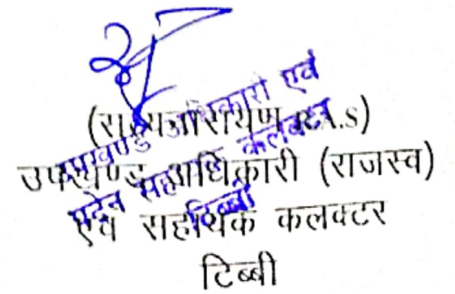 (सत्यनारायण R.A.s)
उपखण्ड अधिकारी (राजस्व)
एवं सहायक कलक्टर
टिब्बी
उपखण्ड अधिकारी एवं
पदेन सहायक कलक्टर
टिब्बी